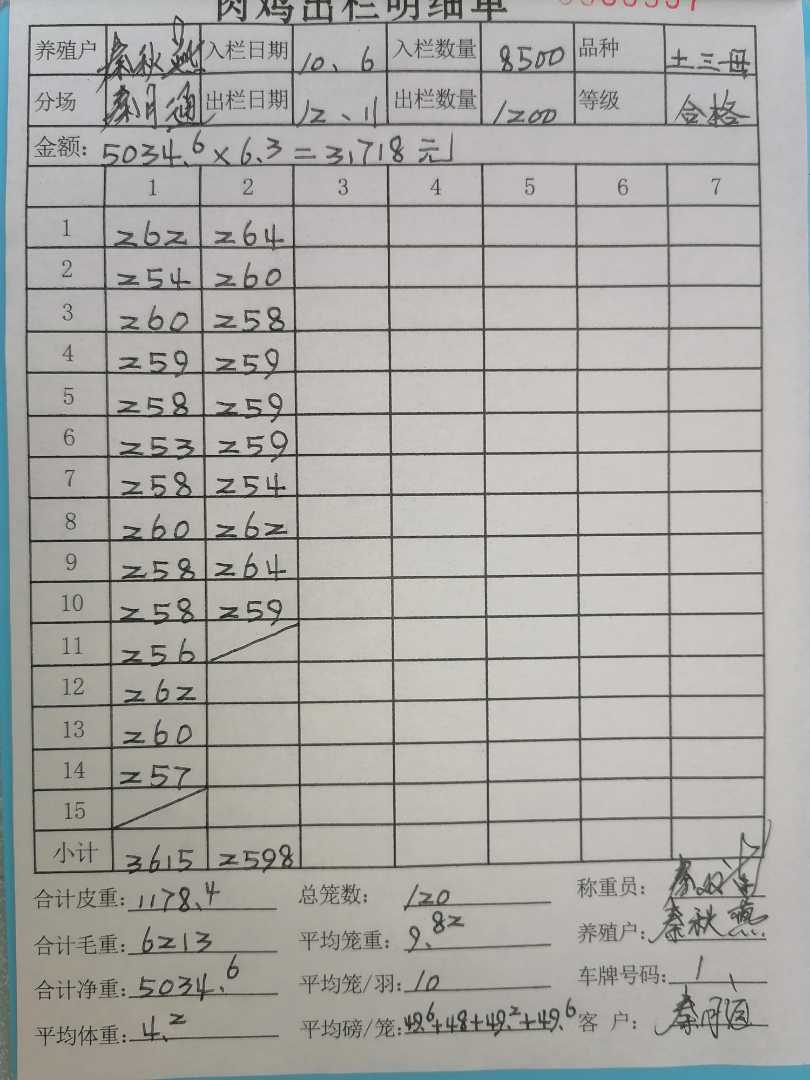 肉鸡出栏明细单
养殖户 秦秋燕 入栏日期 10、6 入栏数量 8500 品种 土三母
分场 秦月通 出栏日期 12、11 出栏数量 1200 等级 合格
金额: 5034.6×6.3=31718元
1 2 3 4 5 6 7
1 262 264
2 254 260
3 260 258
4 259 259
5 258 259
6 253 259
7 258 254
8 260 262
9 258 264
10 258 259
11 256
12 262
13 260
14 257
15
小计 3615 2598
合计皮重: 1178.4 总笼数: 120 称重员:
合计毛重: 6213 平均笼重: 9.82 养殖户: 秦秋燕
合计净重: 5034.6 平均笼/羽: 10 车牌号码: 1、
平均体重: 4.2 平均磅/笼: 49.6+48+49.2+49.6 客 户: